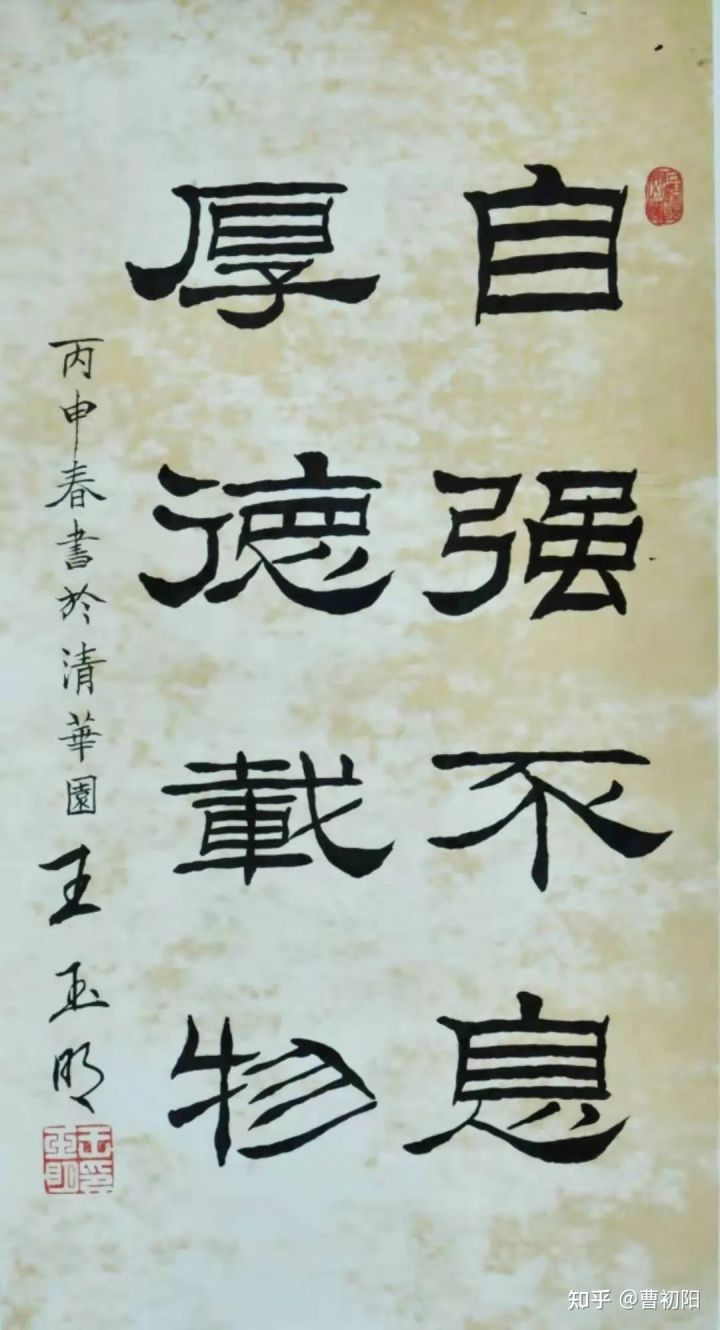 自强不息
厚德載物
丙申春書於清華園
王玉明
知乎 @曹初阳